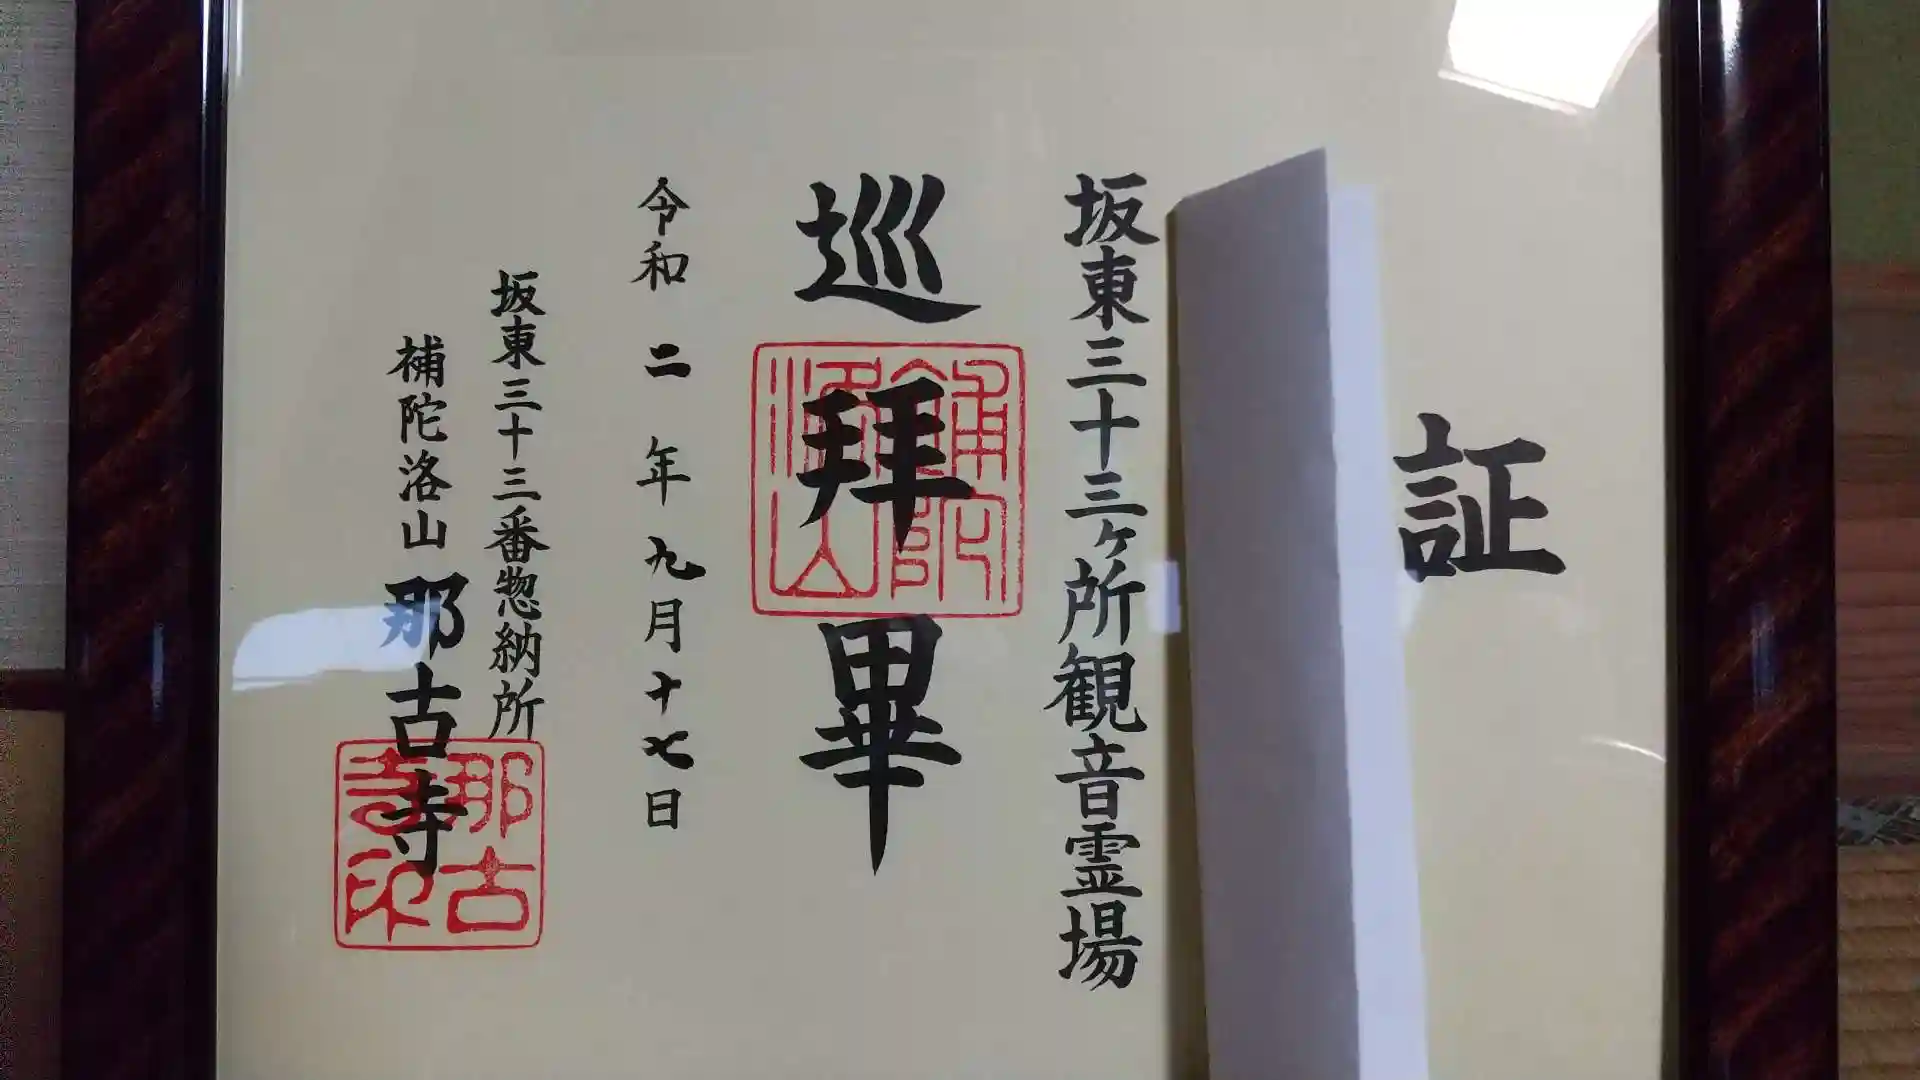 証
坂東三十三ヶ所観音霊場
巡拝畢
令和二年九月十七日
坂東三十三番惣納所
補陀洛山 那古寺
那古寺印